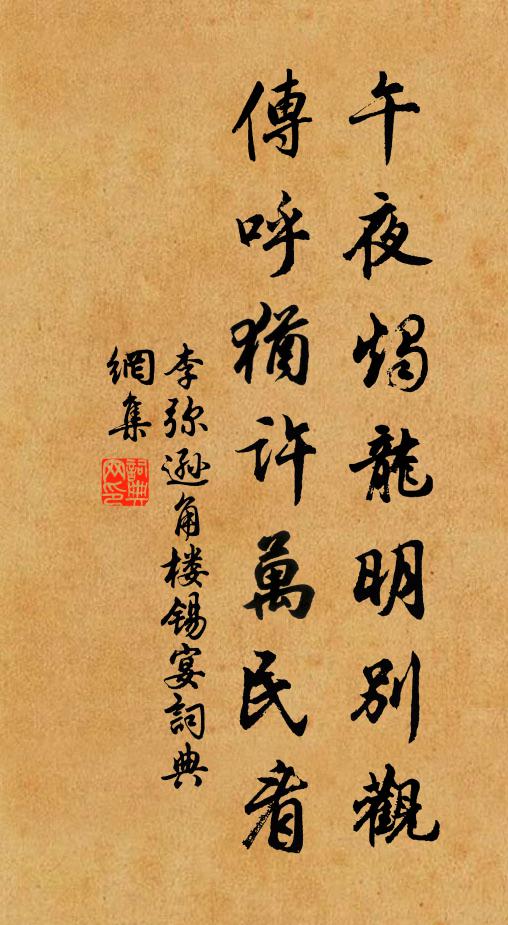 午夜燭龍明別觀
傳呼猶許萬民看
李弥遜角楼锡宴詞典
網集
詞典網印